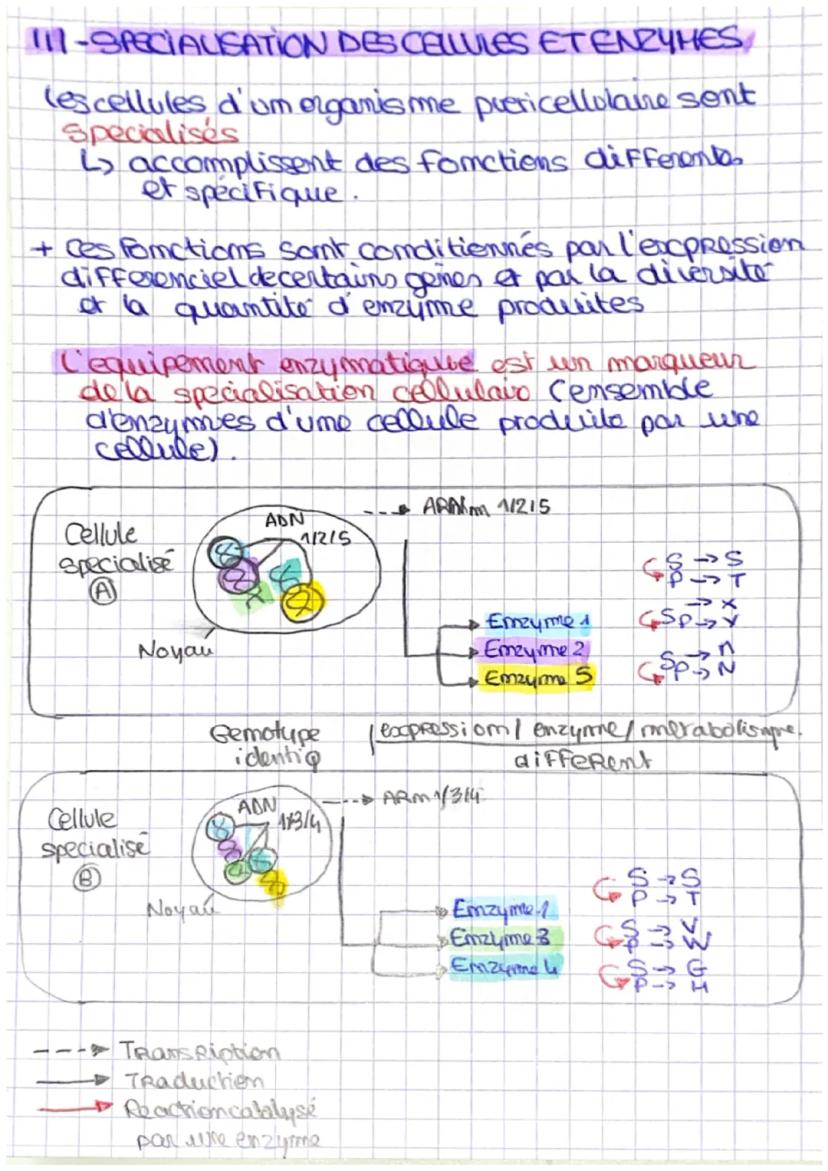 III - SPECIALISATION DES CELLULES ET ENZYMES
les cellules d'un organisme pluricellulaire sont
specialisés
↳ accomplissent des fonctions differents
et spécifique.
+ Ces fonctions sont conditionnés par l'expression
differenciel de certains gènes et par la diversité
et la quantité d'enzyme produites
L'equipement enzymatique est un marqueur
de la specialisation cellulaire (ensemble
d'enzymes d'une cellule produite par une
cellule).
Cellule
specialisé
A
ADN
1/2/5
Noyau
ARNm 1/2/5
Enzyme 1
Enzyme 2
Enzyme 5
S → S
P → T
→ X
SP → Y
S → n
P → N
Genotype
identiq
expression / enzyme / metabolisme
different
Cellule
specialisé
B
ADN
1/3/4
Noyau
ARm 1/3/4
Enzyme 1
Enzyme 3
Enzyme 4
S → S
P → T
S → V
P → W
S → G
P → H
Transription
Traduction
Reaction catalysé
par une enzyme